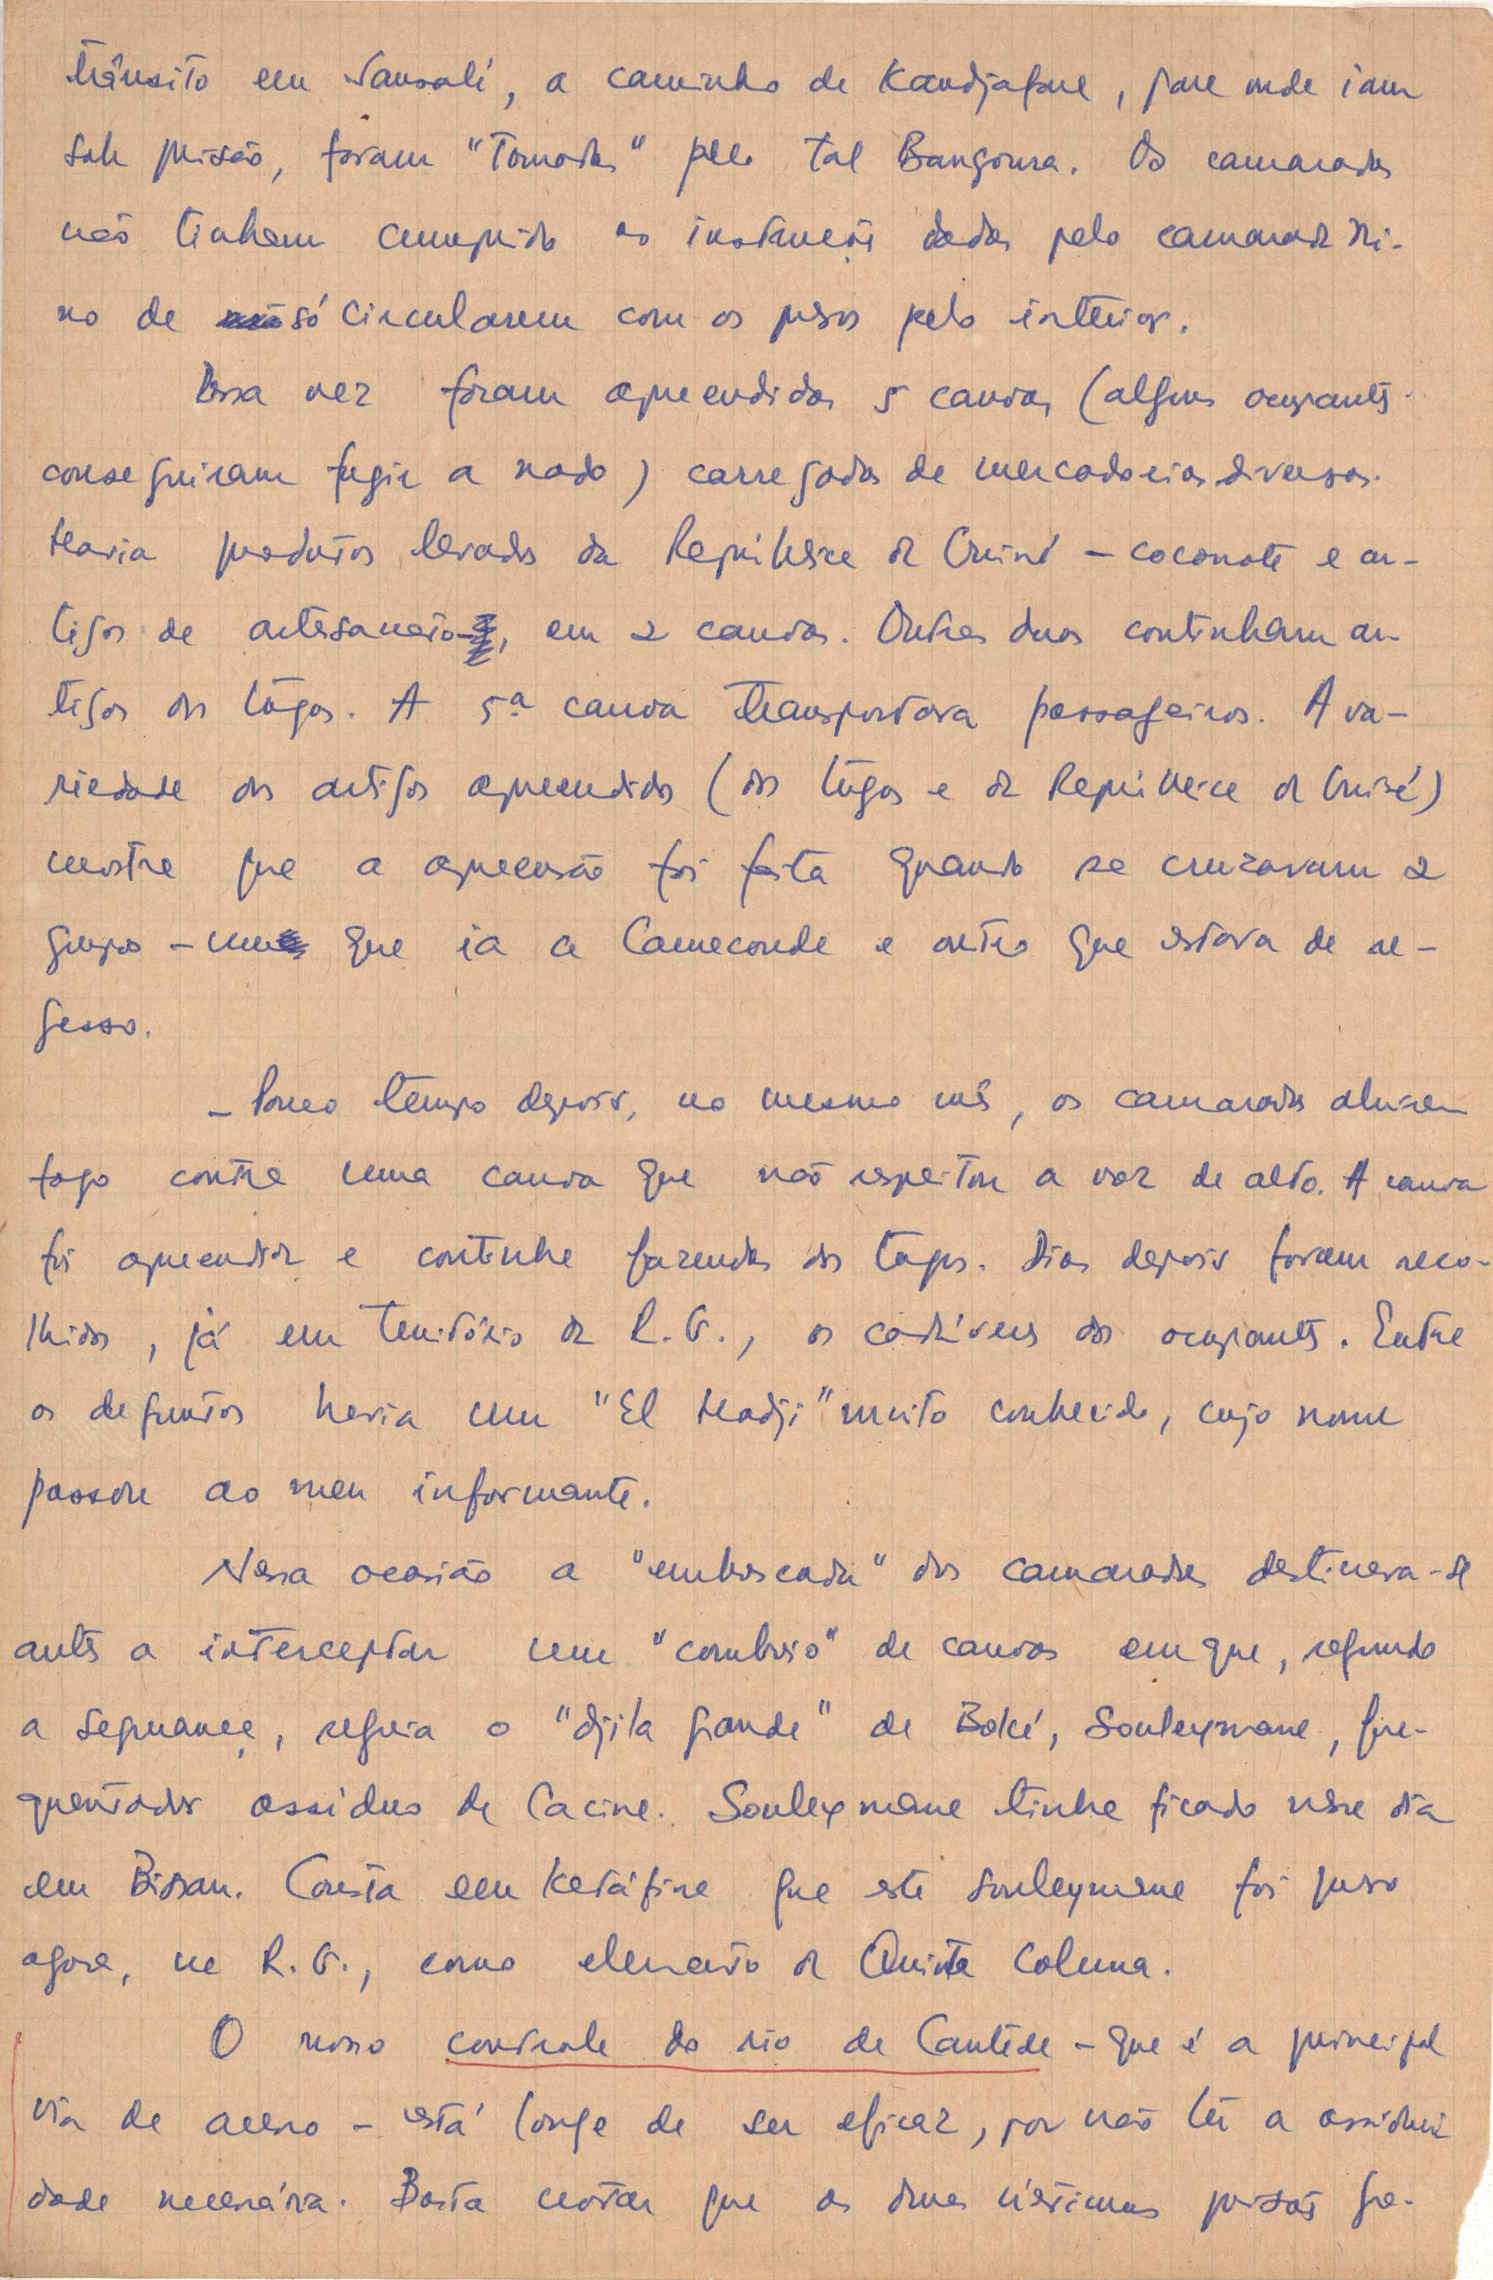 trânsito em Sansalé, a caminho de Kandjafra, para onde iam
sob prisão, foram "tomados" pelo tal Bangoura. Os camaradas
não tinham cumprido as instruções dadas pelo camarada Ni-
no de só circularem com os presos pelo interior.
Dessa vez foram apreendidas 5 canoas (alguns ocupantes
conseguiram fugir a nado) carregadas de mercadorias diversas.
Havia produtos levados da República da Guiné – coconote e ar-
tigos de artesanato, em 2 canoas. Outras duas continham ar-
tigos dos tugas. A 5ª canoa transportava passageiros. A va-
riedade dos artigos apreendidos (dos tugas e da República da Guiné)
mostra que a apreensão foi feita quando se cruzavam 2
grupos – um que ia a Cameconde e outro que estava de re-
gresso.
– Pouco tempo depois, no mesmo mês, os camaradas abriram
fogo contra uma canoa que não respeitou a voz de alto. A canoa
foi apreendida e continha fazendas dos tugas. Dias depois foram reco-
lhidos, já em território da R.G., os cadáveres dos ocupantes. Entre
os defuntos havia um "El Hadji" muito conhecido, cujo nome
passou ao meu informante.
Nessa ocasião a "emboscada" dos camaradas destinava-se
antes a interceptar um "comboio" de canoas em que, segundo
a segurança, seguia o "djila grande" de Boké, Souleymane, fre-
quentador assíduo de Cacine. Souleymane tinha ficado nesse dia
em Bissau. Consta em Kafáfine que este Souleymane foi preso
agora, na R.G., como elemento da Quinta Coluna.
O nosso controle do rio de Cantede – que é a principal
via de acesso – está longe de ser eficaz, por não ter a assidui
dade necessária. Basta notar que as duas últimas prisões fo-